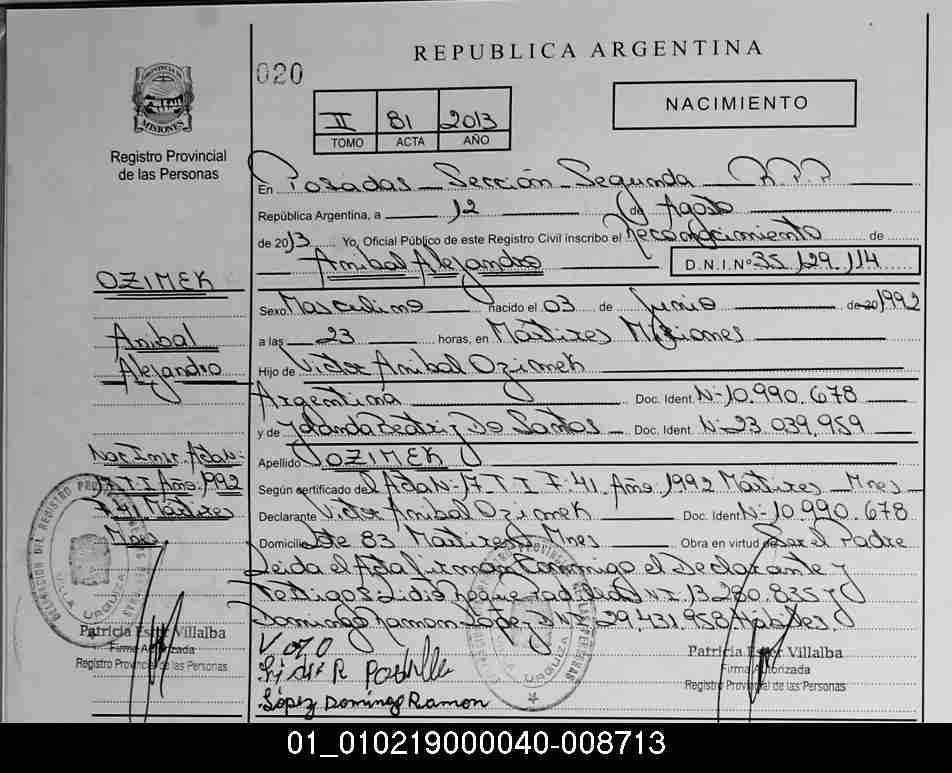 REPUBLICA ARGENTINA
020
NACIMIENTO
II 81 2013
TOMO ACTA AÑO
PROVINCIA DE
MISIONES
Registro Provincial
de las Personas
En Posadas Sección Segunda
República Argentina, a 12 de Agosto
de 2013 Yo, Oficial Público de este Registro Civil inscribo el reconocimiento de
Anibal Alejandro D.N.I. Nº 35.129.114
OZIMEK
Sexo Masculino nacido el 03 de Junio de 20 1992
Anibal
a las 23 horas, en Mártires Misiones
Alejandro
Hijo de Victor Anibal Ozimek
Argentina Doc. Ident. Nº 10.990.678
y de Yolanda Beatriz Do Santos Doc. Ident. Nº 23.039.959
Nac Inscr. Acta Nº
Apellido OZIMEK
17 T I Año 1992
Según certificado del Acta Nº 17 T I F. 41 Año 1992 Mártires Mnes
F 41 Mártires
Declarante Victor Anibal Ozimek Doc. Ident. Nº 10.990.678
Mnes
Domicilio Lote 83 Mártires Mnes Obra en virtud de ser el Padre
Leida el Acta firman conmigo el declarante y
Testigos Lidio DNI 13.280.835 y
Domingo Ramon Lopez DNI 29.431.958 Habiles
VILLA URQUIZA
Patricia Ester Villalba
Firma Autorizada
Registro Provincial de las Personas
V. OZO
R Portillo
López Domingo Ramon
VILLA URQUIZA
Patricia Ester Villalba
Firma Autorizada
Registro Provincial de las Personas
01_010219000040-008713